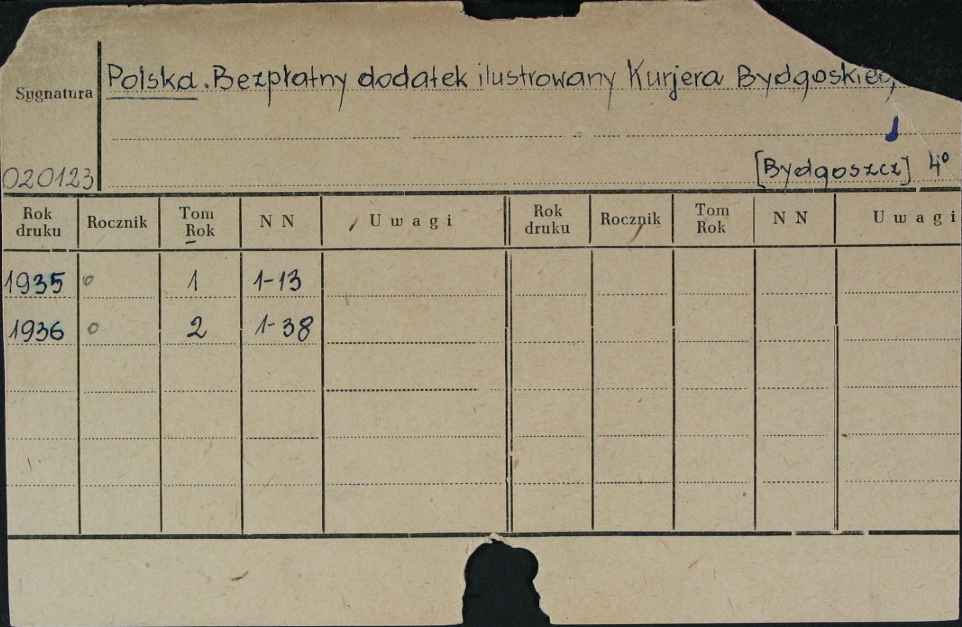 Polska. Bezpłatny dodatek ilustrowany Kurjera
Sygnatura
020123
[Bydgoszcz] 4°
Rok druku Rocznik Tom Rok NN Uwagi Rok druku Rocznik Tom Rok NN Uwagi
1935 o 1 1-13
1936 o 2 1-38